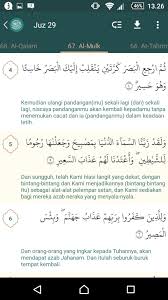 46% 13.26
Juz 29
68. Al-Qalam 67. Al-Mulk 66. At-Tahrim
4
ثُمَّ ٱرْجِعِ ٱلْبَصَرَ كَرَّتَيْنِ يَنقَلِبْ إِلَيْكَ ٱلْبَصَرُ خَاسِئًا
وَهُوَ حَسِيرٌ
Kemudian ulangi pandangan(mu) sekali lagi (dan) sekali
lagi, niscaya pandanganmu akan kembali kepadamu tanpa
menemukan cacat dan ia (pandanganmu) dalam keadaan
letih.
5
وَلَقَدْ زَيَّنَّا ٱلسَّمَآءَ ٱلدُّنْيَا بِمَصَٰبِيحَ وَجَعَلْنَٰهَا رُجُومًا
لِّلشَّيَٰطِينِ ۖ وَأَعْتَدْنَا لَهُمْ عَذَابَ ٱلسَّعِيرِ
Dan sungguh, telah Kami hiasi langit yang dekat, dengan
bintang-bintang dan Kami jadikannya (bintang-bintang
itu) sebagai alat-alat pelempar setan, dan Kami sediakan
bagi mereka azab neraka yang menyala-nyala.
6
وَلِلَّذِينَ كَفَرُوا۟ بِرَبِّهِمْ عَذَابُ جَهَنَّمَ ۖ وَبِئْسَ
ٱلْمَصِيرُ
Dan orang-orang yang ingkar kepada Tuhannya, akan
mendapat azab Jahanam. Dan itulah seburuk-buruk
tempat kembali.